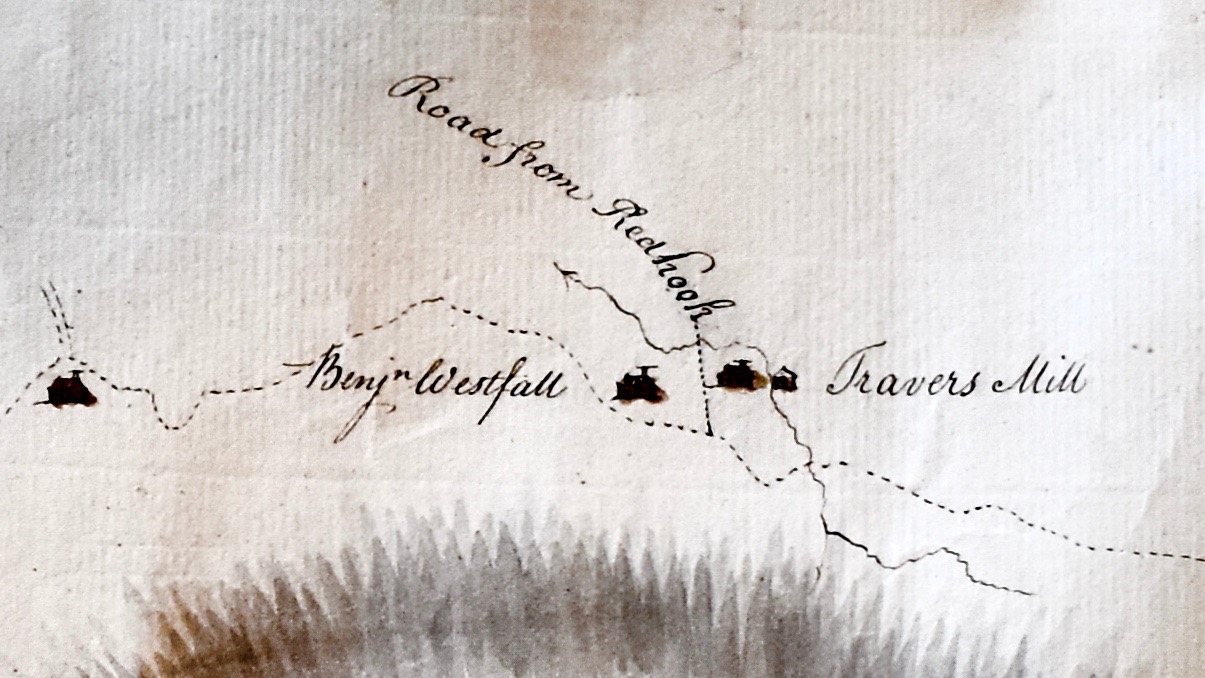 Road from Redhook
Benjn Westfall
Travers Mill